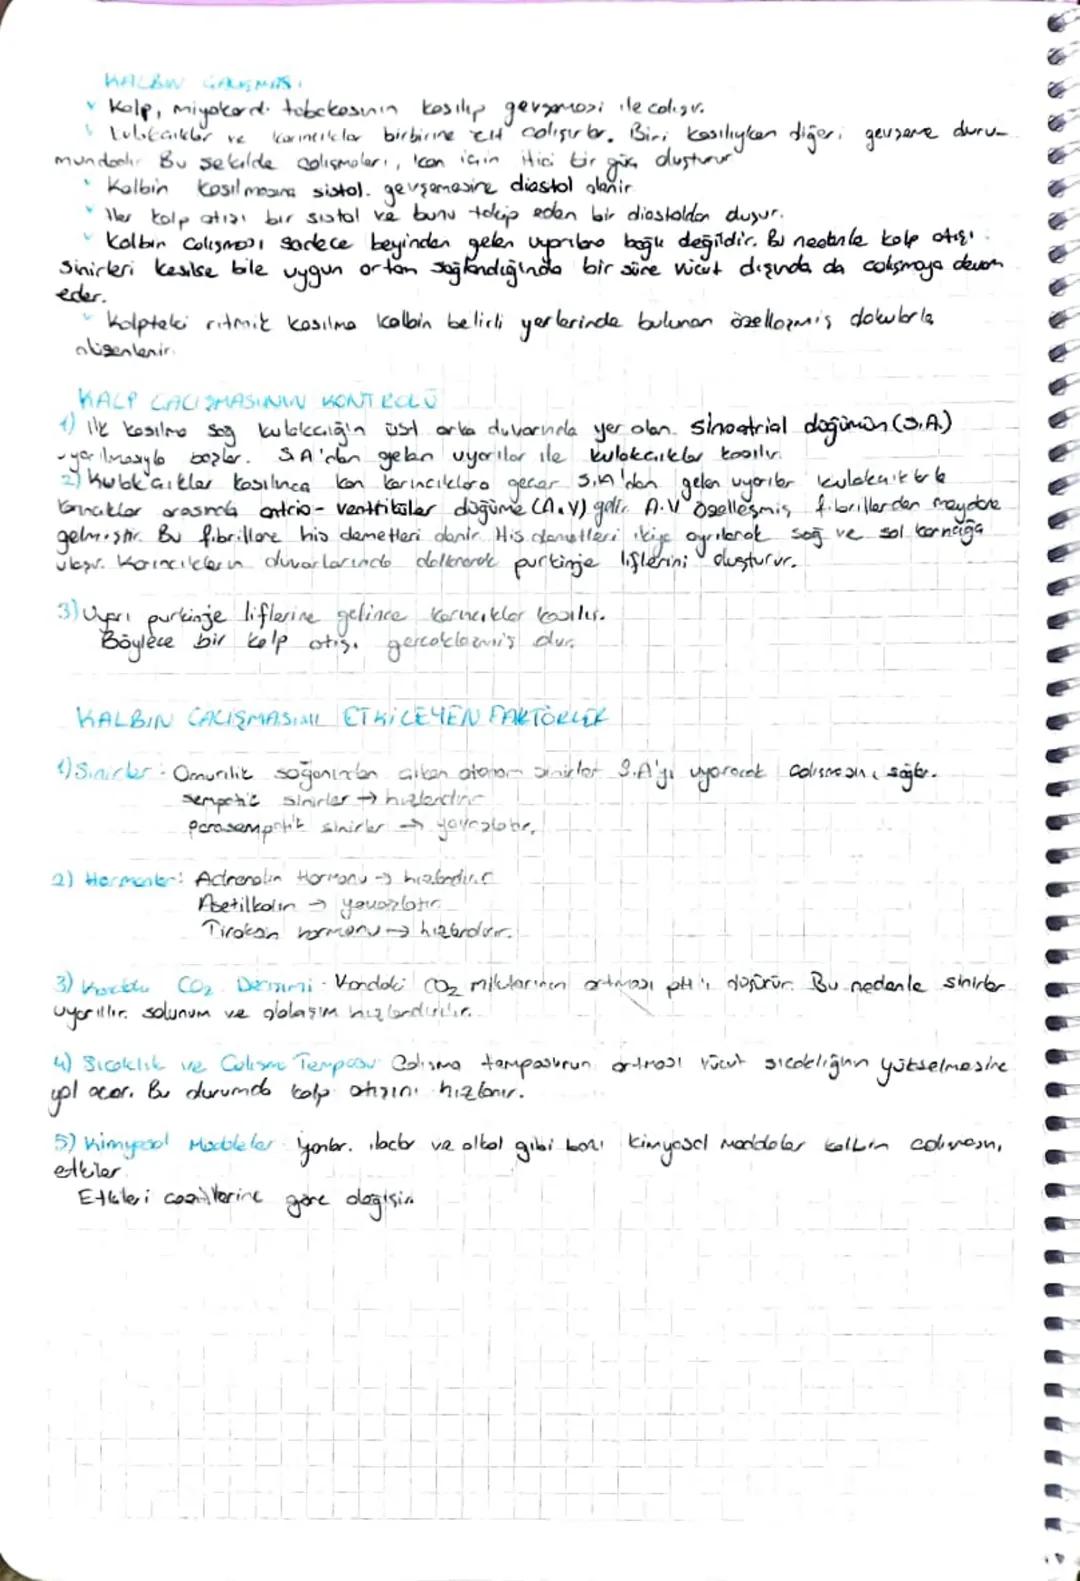 KALBİN ÇALIŞMASI
Kalp, miyokard tabakasının kasılıp gevşemesi ile çalışır.
Kulakçıklar ve karıncıklar birbirine zıt çalışırlar. Biri kasılıyken diğeri gevşeme duru-
mundadır Bu şekilde çalışmaları, kan için itici bir güç oluşturur
Kalbin kasılmasına sistol. gevşemesine diastol denir
Her kalp atışı bir sistol ve bunu takip eden bir diastolden oluşur.
Kalbin çalışması sadece beyinden gelen uyarılara bağlı değildir. Bu nedenle kalp atışı
sinirleri kesilse bile uygun ortam sağlandığında bir süre vücut dışında da çalışmaya devam
eder.
Kalpteki ritmik kasılma kalbin belirli yerlerinde bulunan özelleşmiş dokularla
düzenlenir.
KALP ÇALIŞMASININ KONTROLÜ
1) İlk kasılma sağ kulakçığın üst arka duvarında yer alan sinoatrial düğümün (S.A.)
uyarılmasıyla başlar. S.A'dan gelen uyarılar ile kulakçıklar kasılır.
2) Kulakçıklar kasılınca kan karıncıklara geçer S.A'dan gelen uyarılar kulakçıklarla
karıncıklar arasında antrio-ventriküler düğüme (A.V) gelir. A.V özelleşmiş fibrillerden meydana
gelmiştir. Bu fibrillere his demetleri denir. His demetleri ikiye ayrılarak sağ ve sol karıncığa
ulaşır. Karıncıkların duvarlarında dallanarak purkinje liflerini oluşturur.
3) Uyarı purkinje liflerine gelince karıncıklar kasılır.
Böylece bir kalp atışı gerçekleşmiş olur.
KALBİN ÇALIŞMASINI ETKİLEYEN FAKTÖRLER
1) Sinirler: Omurilik soğanından çıkan otonom sinirler S.A'yı uyararak çalışmasını sağlar.
sempatik sinirler → hızlandırır
Parasempatik sinirler → yavaşlatır.
2) Hormonlar: Adrenalin Hormonu → hızlandırır
Asetilkolin → yavaşlatır
Tiroksin hormonu → hızlandırır.
3) Kandaki CO2 Derişimi: Kandaki CO2 miktarının artması pH'ı düşürür. Bu nedenle sinirler
uyarılır. solunum ve dolaşım hızlandırılır.
4) Sıcaklık ve Çalışma Temposu: Çalışma temposunun artması vücut sıcaklığının yükselmesine
yol açar. Bu durumda kalp atışını hızlanır.
5) Kimyasal Maddeler: İyonlar. ilaçlar ve alkol gibi bazı kimyasal maddeler kalbin çalışmasını
etkiler.
Etkileri çeşitlerine göre değişir.